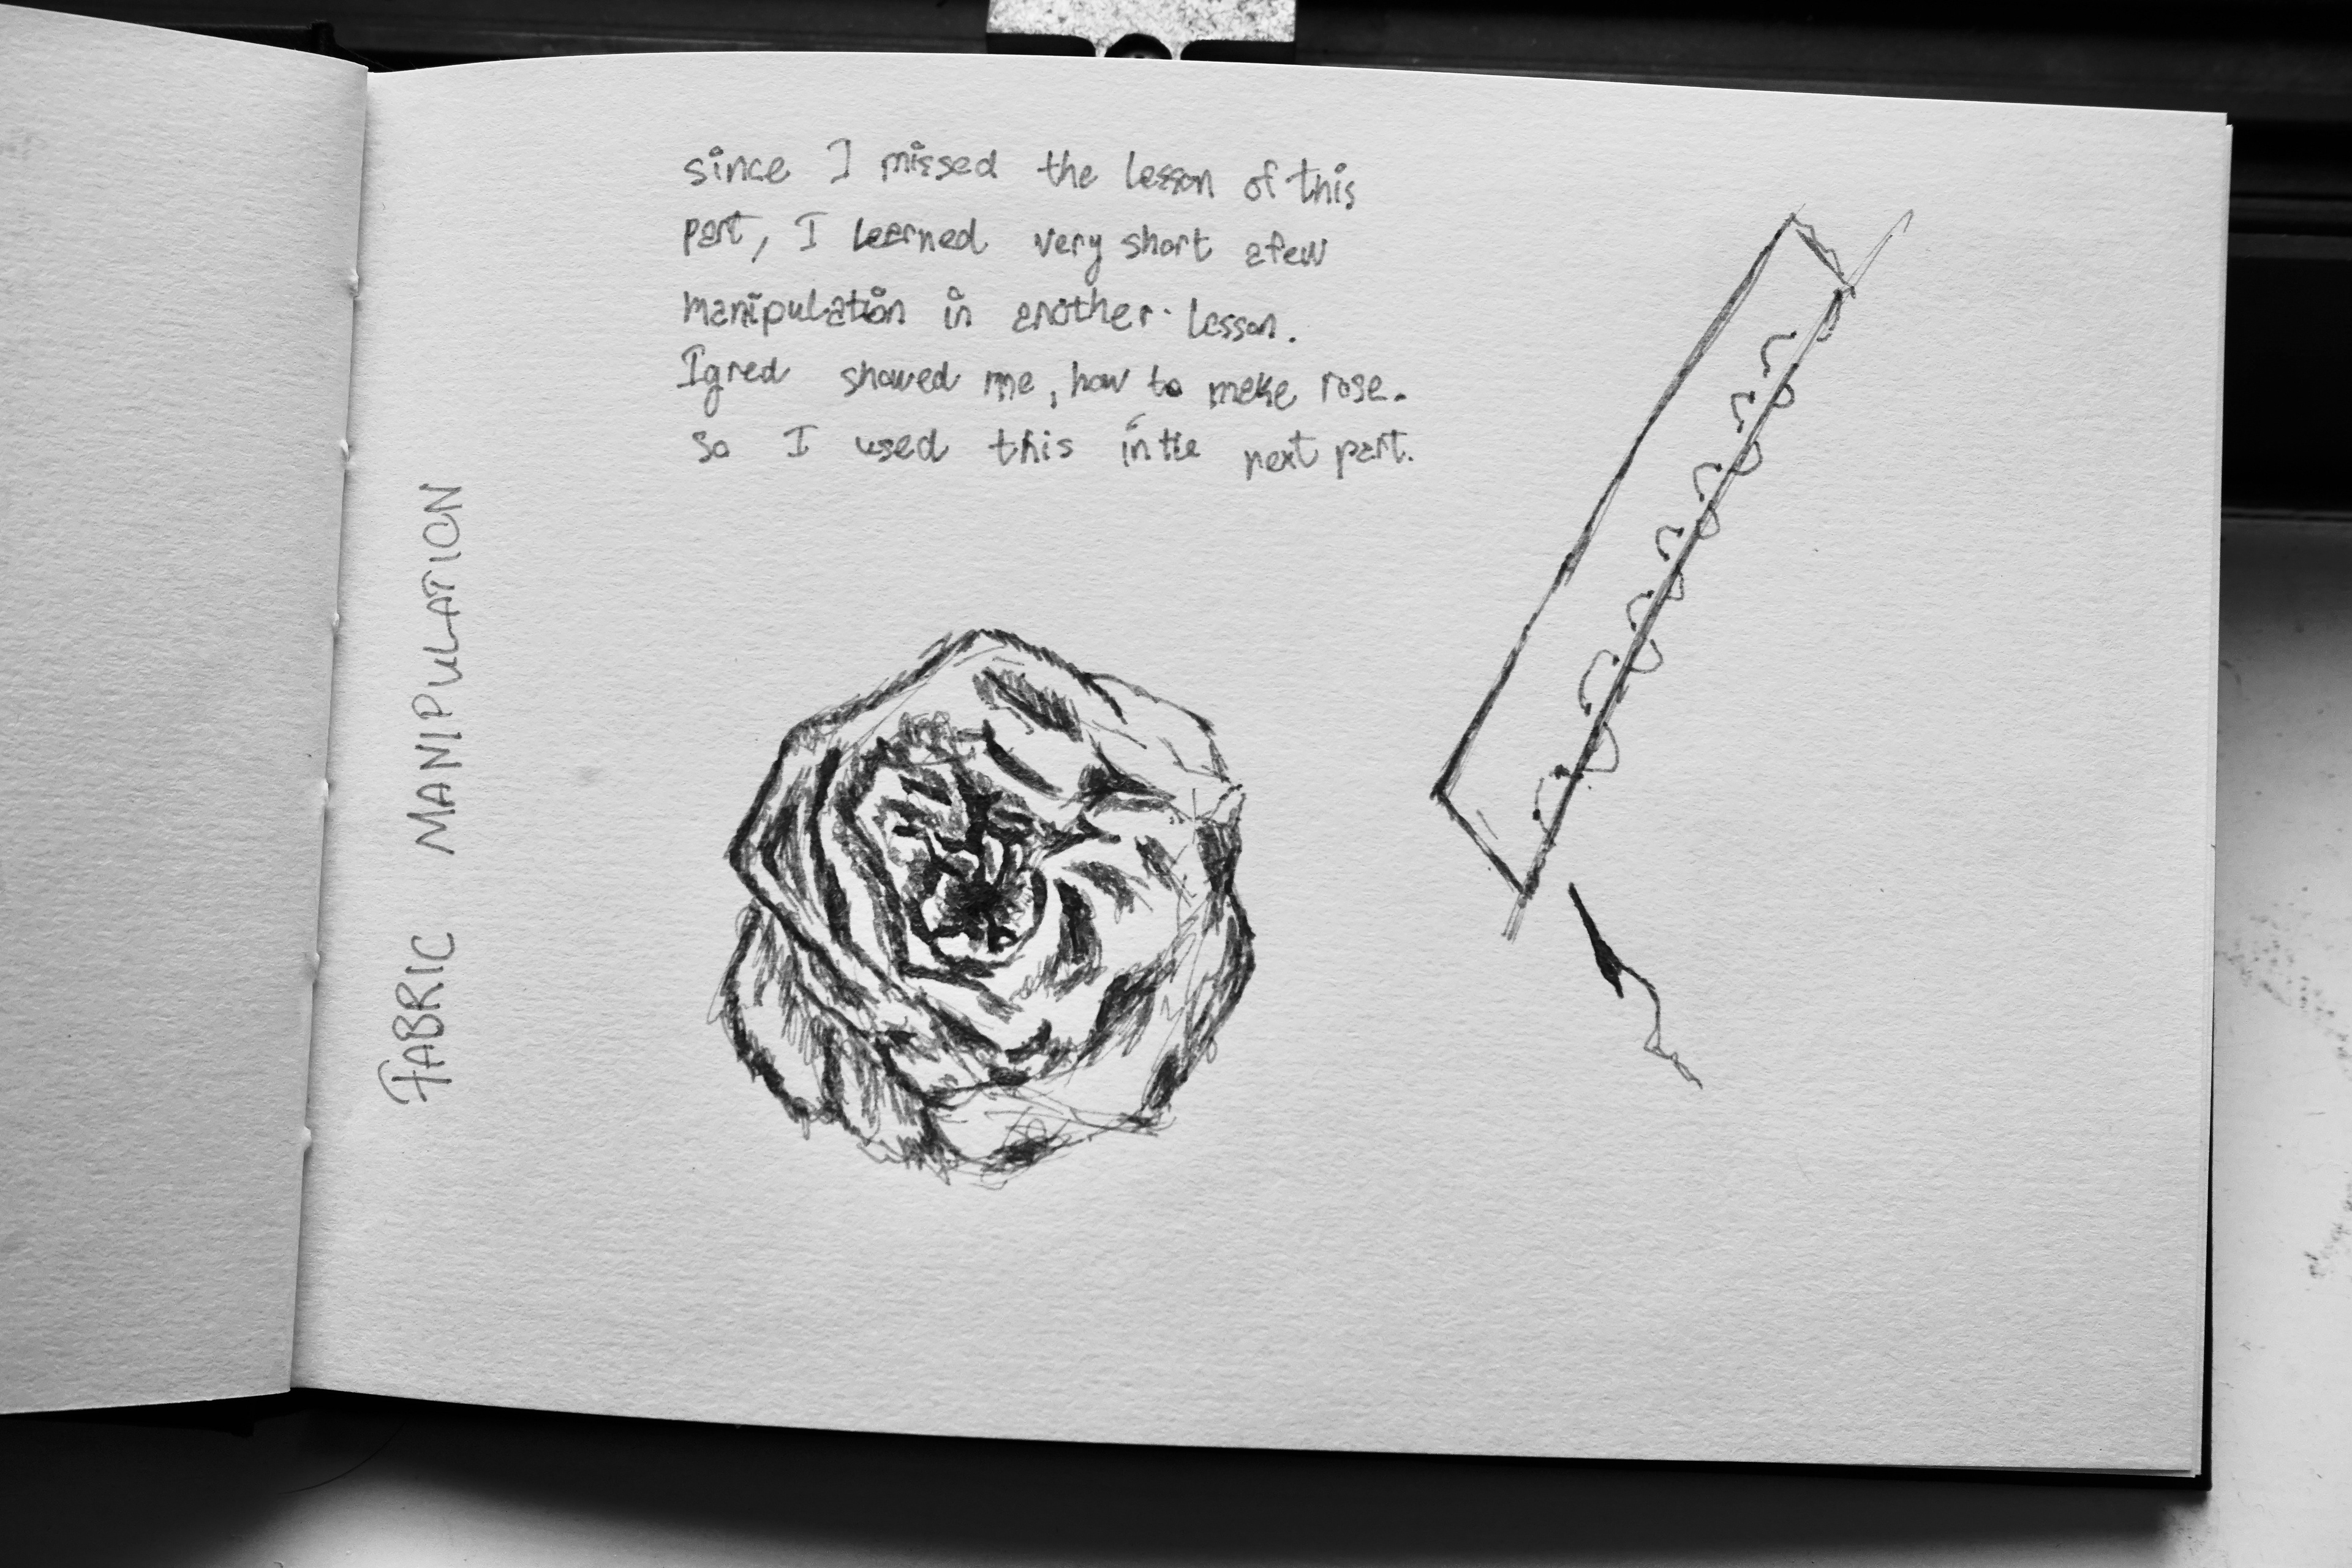 since I missed the lesson of this
part, I learned very short afew
manipulation in another lesson.
Igred showed me, how to make rose.
so I used this in the next part.
FABRIC MANIPULATION